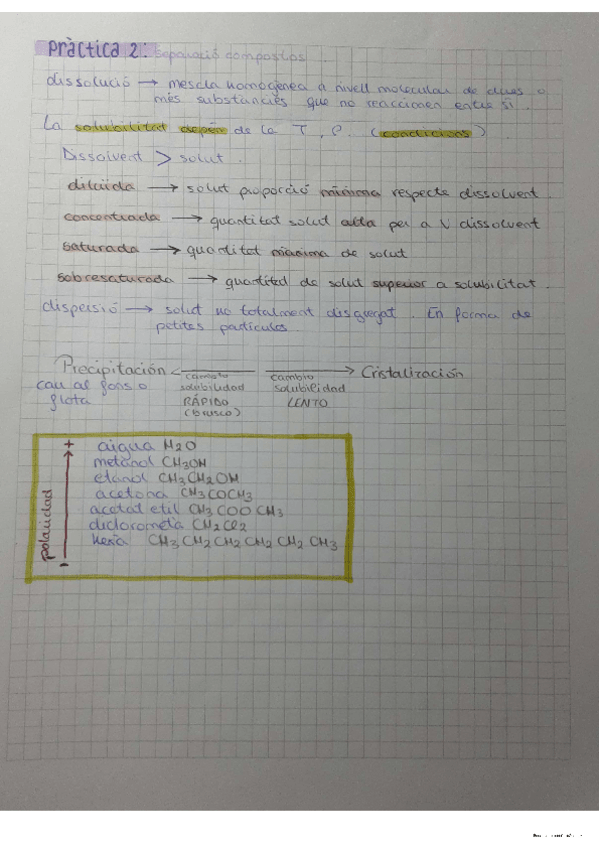 Pràctica 2: Separació compostos.
dissolució → mescla homogènea a nivell molecular de dues o
més substàncies que no reaccionen entre si.
La solubilitat depèn de la T, P. (condicions)
Dissolvent > solut.
diluida → solut proporció mínima respecte dissolvent.
concentrada → quantitat solut alta per a V dissolvent
saturada → quantitat màxima de solut
sobresaturada → quantitad de solut superior a solubilitat.
dispersió → solut no totalment disgregat. En forma de
petites partícules.
Precipitación ← cambio solubilidad RÁPIDO (brusco)
cambio solubilidad LENTO → Cristalización
cau al fons o
flota
polaridad + -
aigua H2O
metanol CH3OH
etanol CH3CH2OH
acetona CH3COCH3
acetat etil CH3COOCH3
diclorometà CH2Cl2
hexà CH3CH2CH2CH2CH2CH3